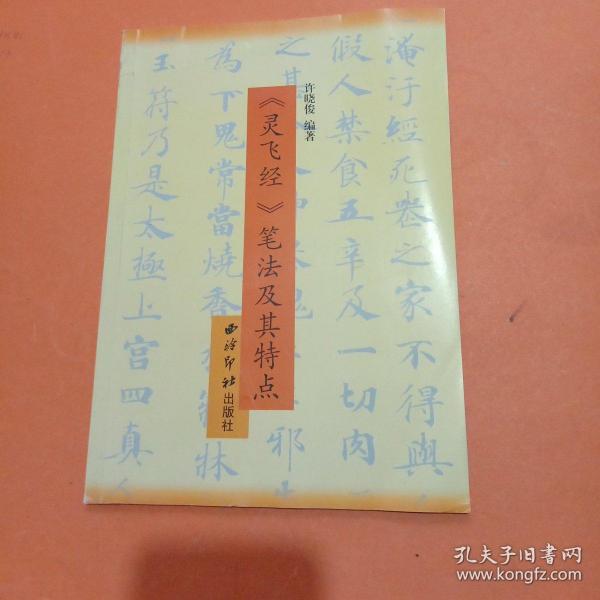 淹汙經死喪之家不得與
假人禁食五辛及一切肉
之其
為下鬼常當燒香
牀
邪
玉符乃是太極上宮四真
许晓俊 编著
《灵飞经》笔法及其特点
西泠印社出版社
孔夫子旧书网
www.kongfz.com